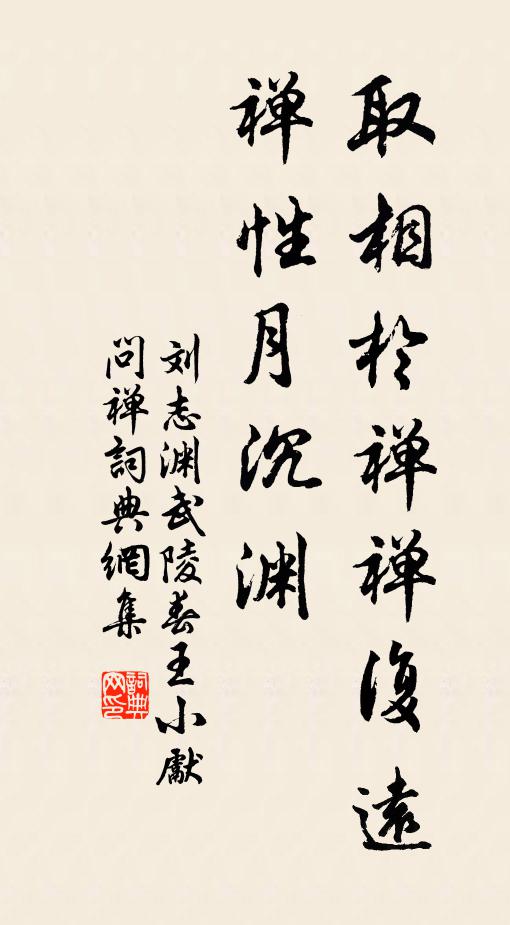 取相於禅禅復遠
禅性月沉渊
刘志渊武陵春王小獻
問禅詞典網集
詞典
网印